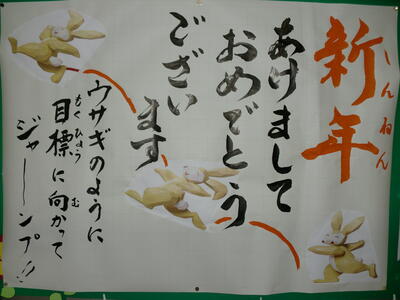 新年
しんねん
あけまして
おめでとう
ござい
ます
ウサギのように
目標に向かって
もくひょう む
ジャーンプ!!